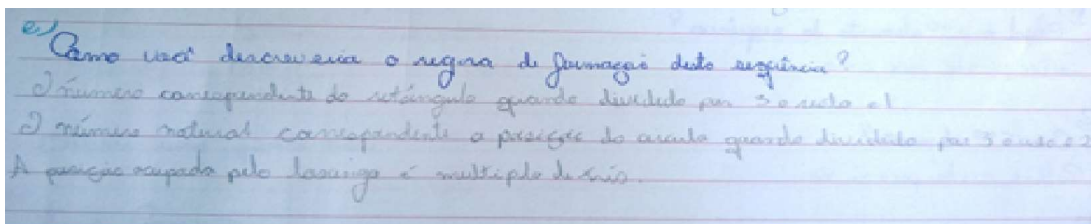 e)
Como você descreveria a regra de formação desta sequência?
O número correspondente do retângulo quando dividido por 3 o resto é 1
O número natural correspondente a posição do círculo quando dividido por 3 o resto é 2
A posição ocupada pelo losango é multiplo de três.